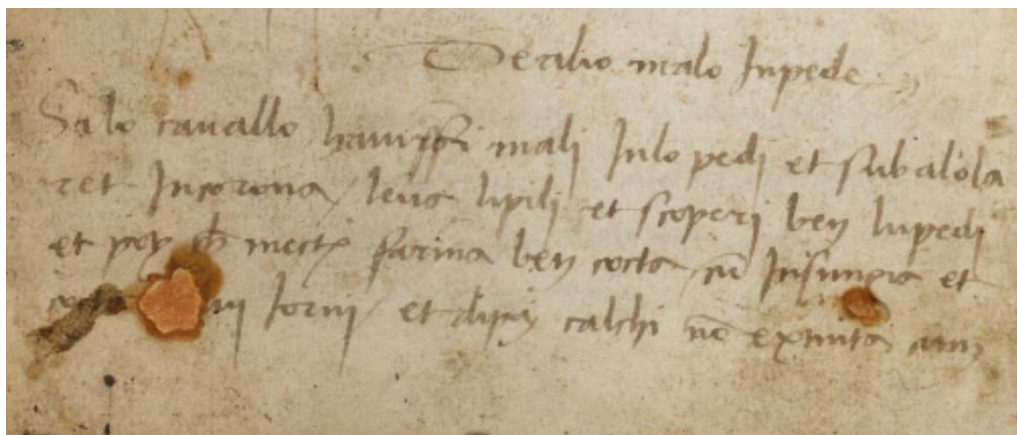 De alio malo Inpede
Sa lo cauallo hauissi mali Inlo pedi et sub alola
ret Incorona leua lipili et scoperi ben lupedi
et poy mecti farina ben cocta cū Insungia et
iorni et dipoy calchi nō extinta